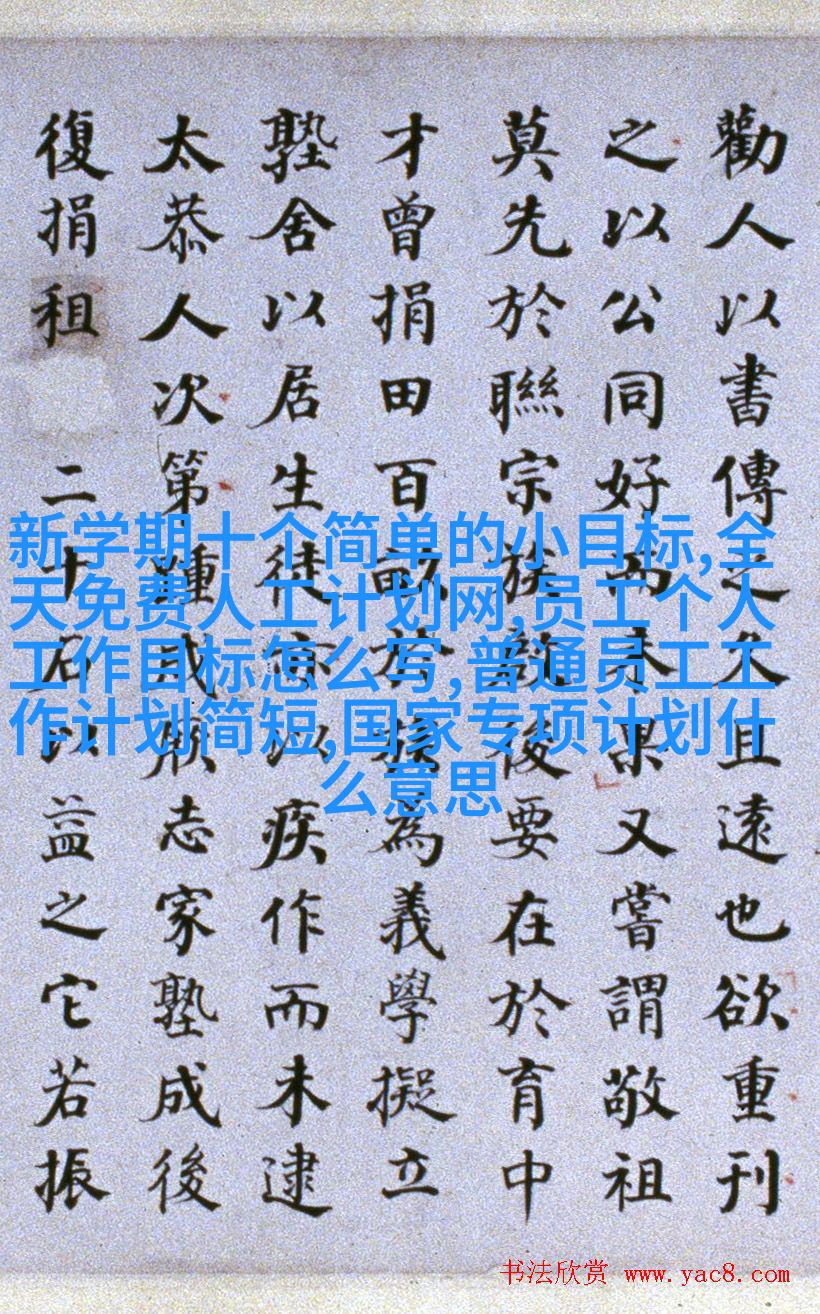 勸人以書傳之久且遠也欲重刊
之以公同好而未果又嘗謂敬祖
莫先於聯宗族後要在於育中
才曾捐田百畝於為義學擬立
塾舍以居生徒以疾作而未逮
太恭人次第踵成厥志家塾成後
復捐租二十石以益之它若振
新学期十个简单的小目标,全
天免费人工计划网,员工个人
工作目标怎么写,普通员工工
作计划简短,国家专项计划什
么意思
书法欣赏 www.yac8.com